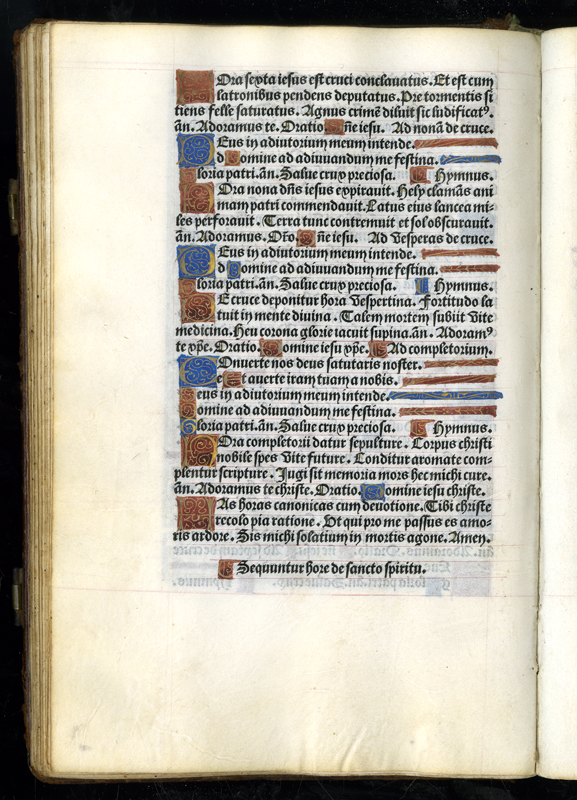 HOra sexta iesus est cruci conclauatus. Et est cum
latronibus pendens deputatus. Pre tormentis si
tiens felle saturatus. Agnus crimē diluit sic ludificatꝰ.
ān. Adoramus te. Oratio. Dn̄e iesu. Ad nonā de cruce.
DEus in adiutorium meum intende.
d Domine ad adiuuandum me festina.
Gloria patri. ān. Salue crux preciosa. Hymnus.
HOra nona dn̄s iesus expirauit. Hely clamās ani
mam patri commendauit. Latus eius lancea mi-
les perforauit. Terra tunc contremuit et sol obscurauit.
ān. Adoramus. Or̄o. Dn̄e iesu. Ad Vesperas de cruce.
DEus in adiutorium meum intende.
d Domine ad adiuuandum me festina.
Gloria patri. ān. Salue crux preciosa. Hymnus.
DE cruce deponitur hora Vespertina. Fortitudo la
tuit in mente diuina. Talem mortem subiit Vite
medicina. Heu corona glorie iacuit supina. ān. Adoramꝰ
te xp̄e. Oratio. Domine iesu xp̄e. Ad completorium.
COnuerte nos deus salutaris noster.
c Et auerte iram tuam a nobis.
Deus in adiutorium meum intende.
Domine ad adiuuandum me festina.
Gloria patri. ān. Salue crux preciosa. Hymnus.
HOra completorii datur sepulture. Corpus christi
nobile spes Vite future. Conditur aromate com-
plentur scripture. Jugi sit memoria mors hec michi cure.
ān. Adoramus te christe. Oratio. Domine iesu christe.
HAs horas canonicas cum deuotione. Tibi christe
recolo pia ratione. Vt qui pro me passus es amo-
ris ardore. Sis michi solatium in mortis agone. Amen.
Sequuntur hore de sancto spiritu.